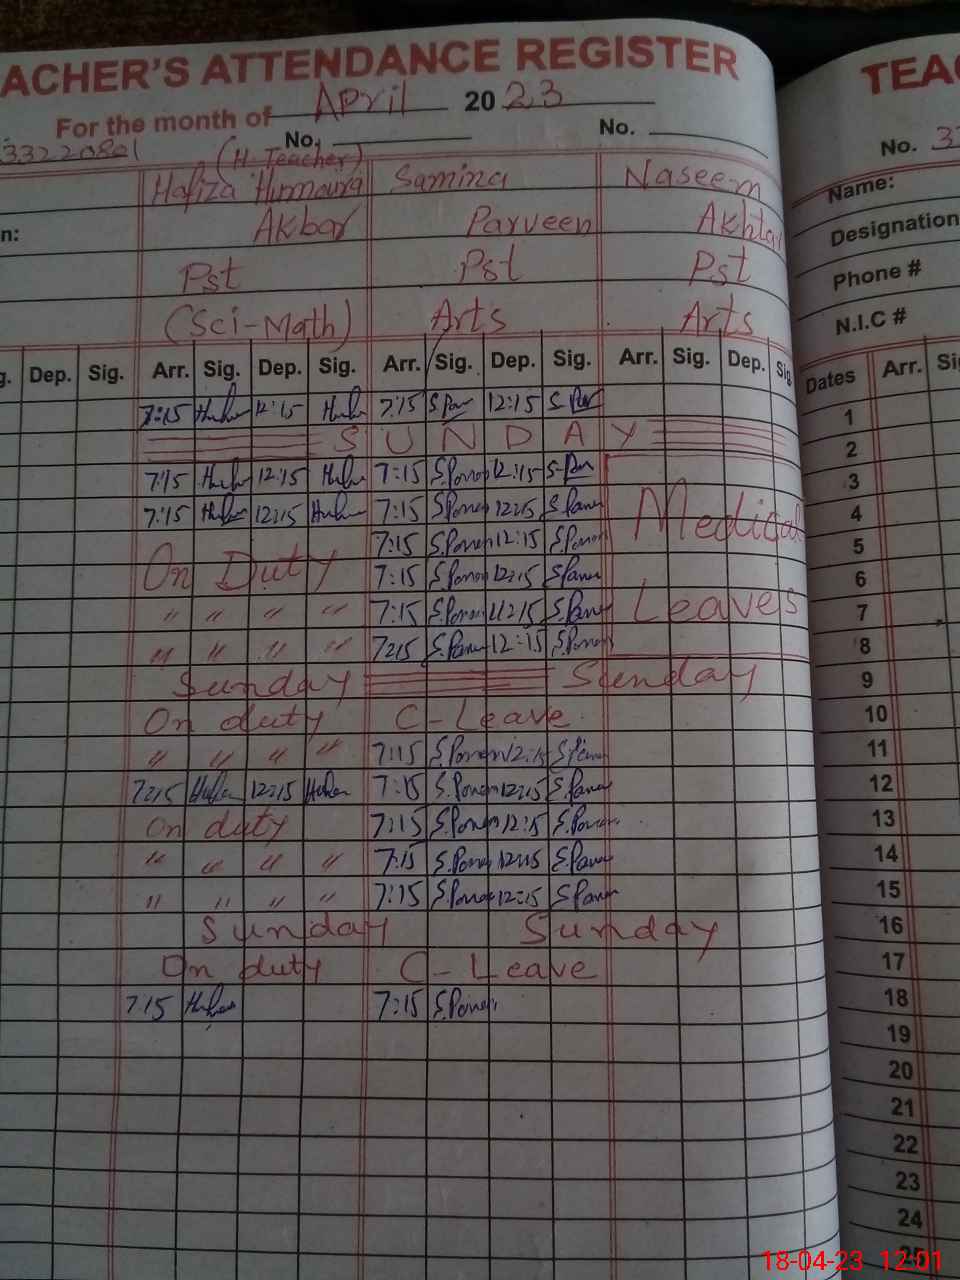 ACHER'S ATTENDANCE REGISTER TEAC
For the month of April 2023
33220801 No. No. No. 33
(H. Teacher)
Hafiza Humaira Samina Naseem Name:
n: Akbar Parveen Akhtar Designation
Pst Pst Pst Phone #
(Sci-Math) Arts Arts N.I.C #
g. Dep. Sig. Arr. Sig. Dep. Sig. Arr. Sig. Dep. Sig. Arr. Sig. Dep. Sig Dates Arr. Sig
7:15 12:15 7:15 S Par 12:15 S. Par 1
SUNDAY 2
7:15 12:15 7:15 12:15 3
7:15 12:15 7:15 12:15 Medical 4
7:15 12:15 5
On Duty 7:15 12:15 6
" " " " 7:15 12:15 Leaves 7
" " " " 7:15 12:15 8
Sunday Sunday 9
On duty C-Leave 10
" " " " 7:15 12:15 11
7:15 12:15 7:15 12:15 12
On duty 7:15 12:15 13
" " " " 7:15 12:15 14
" " " " 7:15 12:15 15
Sunday Sunday 16
On duty C-Leave 17
7:15 7:15 18
19
20
21
22
23
24
18-04-23 12:01